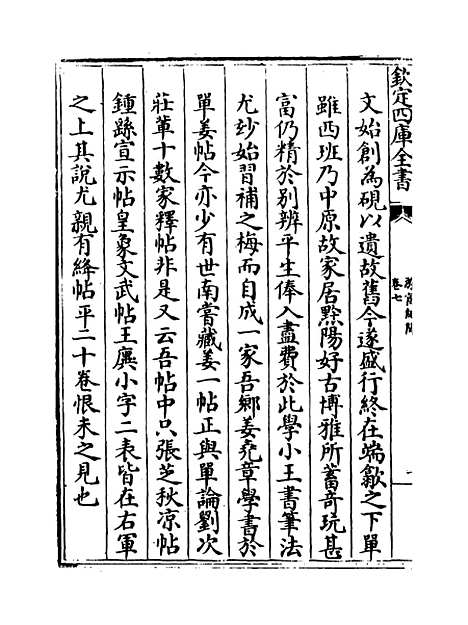 欽定四庫全書
卷七
文始創為硯以遺故舊今遂盛行終在端歙之下單
雖西班乃中原故家居黟陽好古博雅所蓄奇玩甚
富仍精於別辨平生俸入盡費於此學小王書筆法
尤妙始習補之梅而自成一家吾鄉姜堯章學書於
單姜帖今亦少有世南嘗藏姜一帖正與單論劉次
莊輩十數家釋帖非是又云吾帖中只張芝秋凉帖
鍾繇宣示帖皇象文武帖王廙小字二表皆在右軍
之上其說尤親有絳帖平二十卷恨未之見也